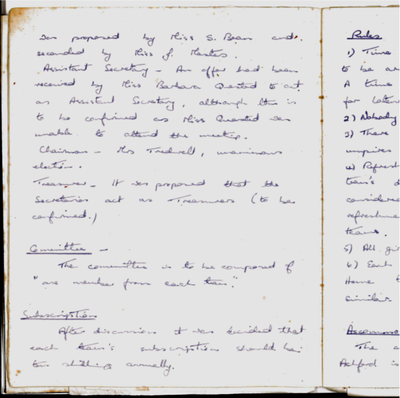 was proposed by Miss S. Bean and
seconded by Miss J. Masters.
Assistant Secretary - An offer had been
received by Miss Barbara Quested to act
as Assistant Secretary, although this is
to be confirmed as Miss Quested was
unable to attend the meeting.
Chairman - Mrs Tredwell, unanimous
election.
Treasurer - It was proposed that the
Secretaries act as Treasurers (to be
confirmed.)
Committee -
The committee is to be composed of
"one member from each team".
Subscription
After discussion it was decided that
each team's subscription should be
ten shilling annually.
Rules
1) Time
to be
A time
for late
2) Nobody
3) There
umpires
4) Refresh
team's
considered
refreshme
teams.
5) All gi
6) Each
Home
similar
The
Ashford is